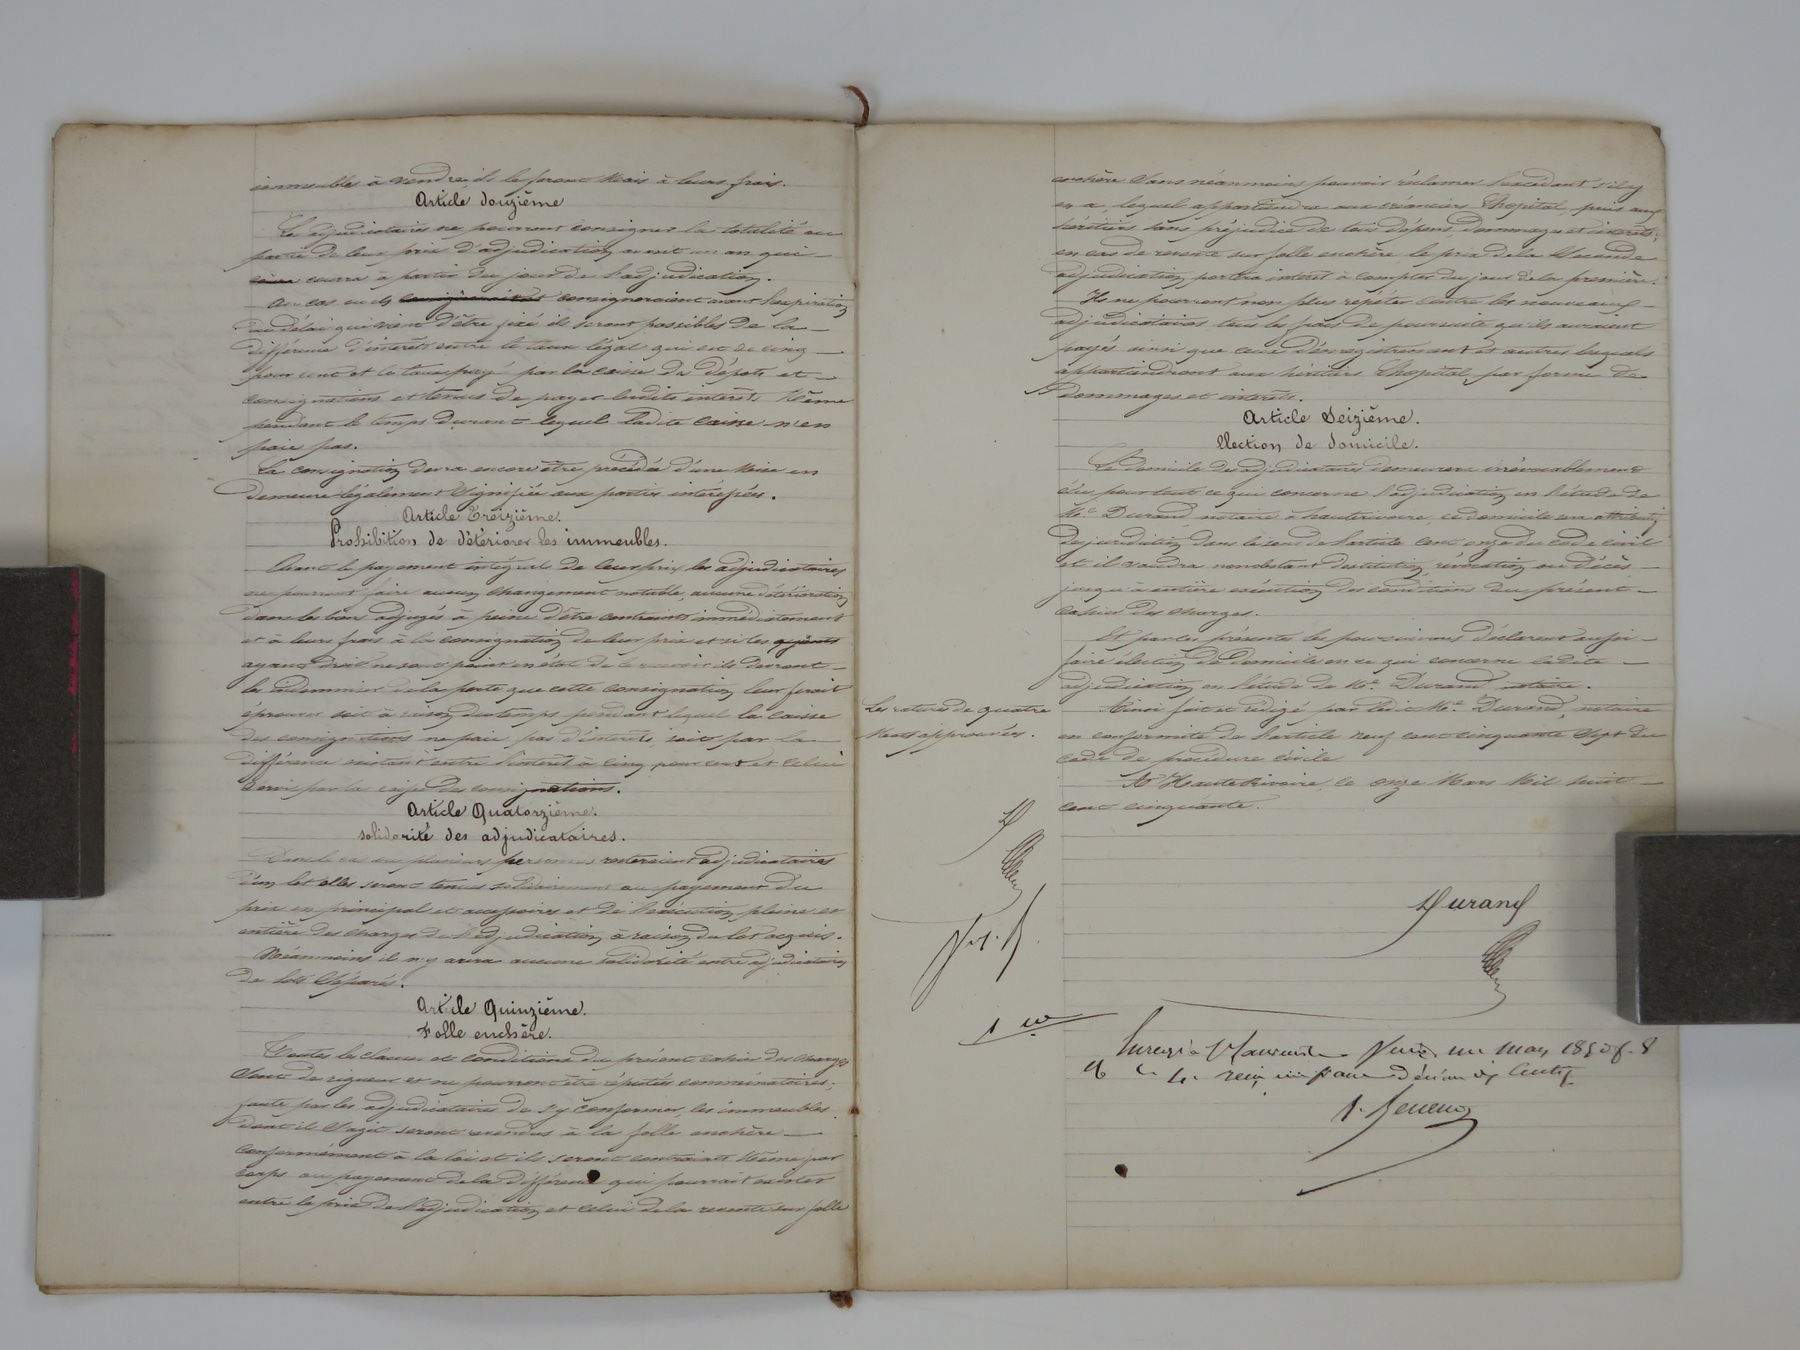 immeubles à vendre, ils le feront Mais à leurs frais.
Article douzième
Les adjudicataires ne pourront consigner la totalité ou
partie de leur prix d'adjudication avant un an qui
courra à partir du jour de l'adjudication.
Au cas où ils consigneraient avant l'expiration
du délai qui vient d'être fixé ils seront passibles de la
différence d'intérêt entre le taux légal qui est de cinq
pour cent et le taux payé par la caisse des dépots et
consignations et tenus de payer lesdits intérêts Même
pendant le temps durant lequel ladite caisse n'en
paie pas.
La consignation devra encore être précédée d'une Mise en
demeure légalement Signifiée aux parties intéressées.
Article Treizième.
Prohibition de détériorer les immeubles.
Avant le payement intégral de leur prix les adjudicataires
ne pourront faire aucun Changement notable, aucune détérioration
dans les biens adjugés à peine d'être contraints immédiatement
et à leurs frais à la consignation de leur prix et si les
ayant droit ne sont point en état de le recevoir ils devront
les indemniser de la perte que cette consignation leur ferait
éprouver soit à raison du temps pendant lequel la caisse
des consignations ne paie pas d'intérêts, soit par la
différence existant entre l'intérêt à cinq pour cent et celui
servi par la caisse des consignations.
Article Quatorzième.
solidarité des adjudicataires.
Dans le cas où plusieurs personnes resteraient adjudicataires
d'un lot elles seront tenues solidairement au payement du
prix en principal et accessoires et de l'exécution pleine et
entière des Charges de l'adjudication à raison du lot acquis.
Néanmoins il n'y aura aucune solidarité entre adjudicataires
de lots Séparés.
Article Quinzième.
Folle enchère.
Toutes les clauses et conditions du présent cahier des charges
Sont de rigueur et ne pourront être réputées comminatoires;
faute par les adjudicataires de s'y conformer, les immeubles
dont il S'agit seront vendus à la folle enchère
conformément à la loi et ils seront contraints Même par
corps au payement de la différence qui pourrait exister
entre le prix de l'adjudication et celui de la revente sur folle
enchère Sans néanmoins pouvoir réclamer l'excédant s'il y
en a, lequel appartiendra aux créanciers Chopital, puis aux
héritiers sans préjudice de tous dépens, dommages et intérêts;
en cas de revente sur folle enchère le prix de la Seconde
adjudication portera intérêt à compter du jour de la première.
Ils ne pourront non plus répéter contre les nouveaux
adjudicataires tous les frais de poursuite qu'ils auraient
payés ainsi que ceux d'enregistrement et autres lesquels
appartiendront aux héritiers Chopital par forme de
Dommages et intérêts.
Article Seizième.
Election de domicile.
Le domicile des adjudicataires demeurera irrévocablement
élu pour tout ce qui concerne l'adjudication en l'étude de
Me. Durand notaire à hauterivoire, ce domicile son attributif
de juridiction dans le sens de l'article cent onze du code civil
et il vaudra nonobstant destitution, révocation ou décès
jusqu'à entière exécution des conditions du présent
cahier des charges.
Et par les présentes les poursuivans déclarent aussi
faire élection de Domicile en ce qui concerne ladite
adjudication en l'étude de Me. Durand notaire.
Les ratures de quatre
Mots approuvées.
Ainsi fait et rédigé par ledit Me. Durand, notaire
en conformité de l'article neuf cent cinquante Sept du
code de procédure civile
A Hauterivoire, le onze Mars Mil huit
cent cinquante.
D
Durand